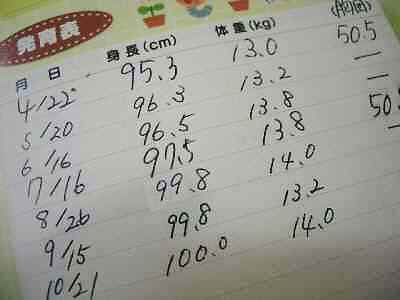 発育表
月 日 身長(cm) 体重(kg) (胸囲)
4/22 95.3 13.0 50.5
5/20 96.3 13.2 —
6/16 96.5 13.8 —
7/16 97.5 13.8 50.
8/26 99.8 14.0 —
9/15 99.8 13.2
10/21 100.0 14.0